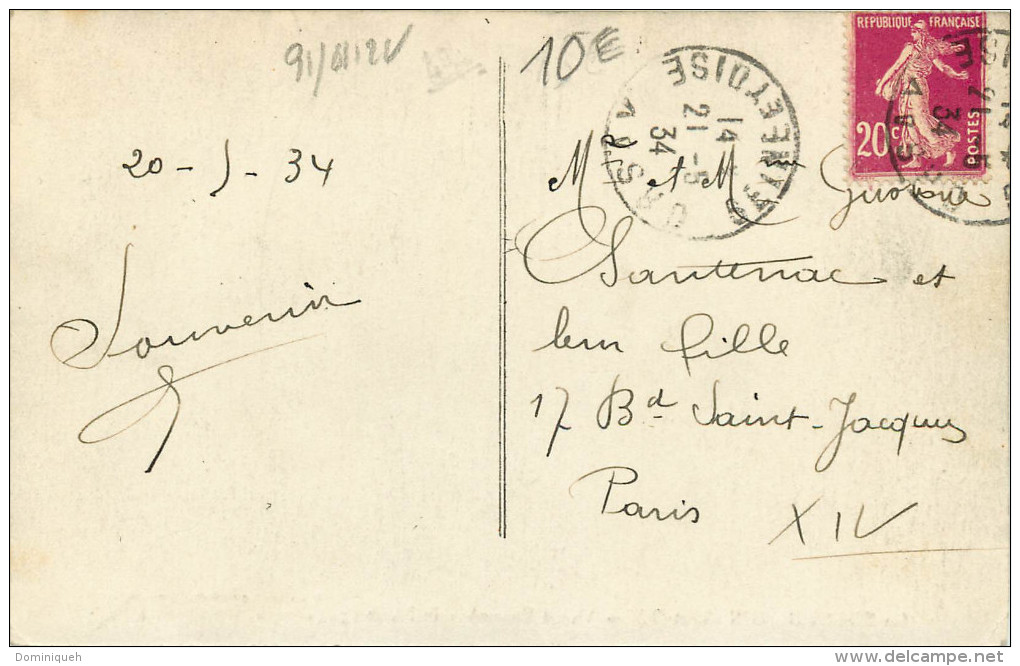 91/
10€
20 - 5 - 34
Souvenir
RÉPUBLIQUE FRANÇAISE
20c
POSTES
14
21 - 5
34
Mr et Mme
Santenac et
leur fille
17 Bd Saint-Jacques
Paris XIV
Dominiqueh
delcampe.net